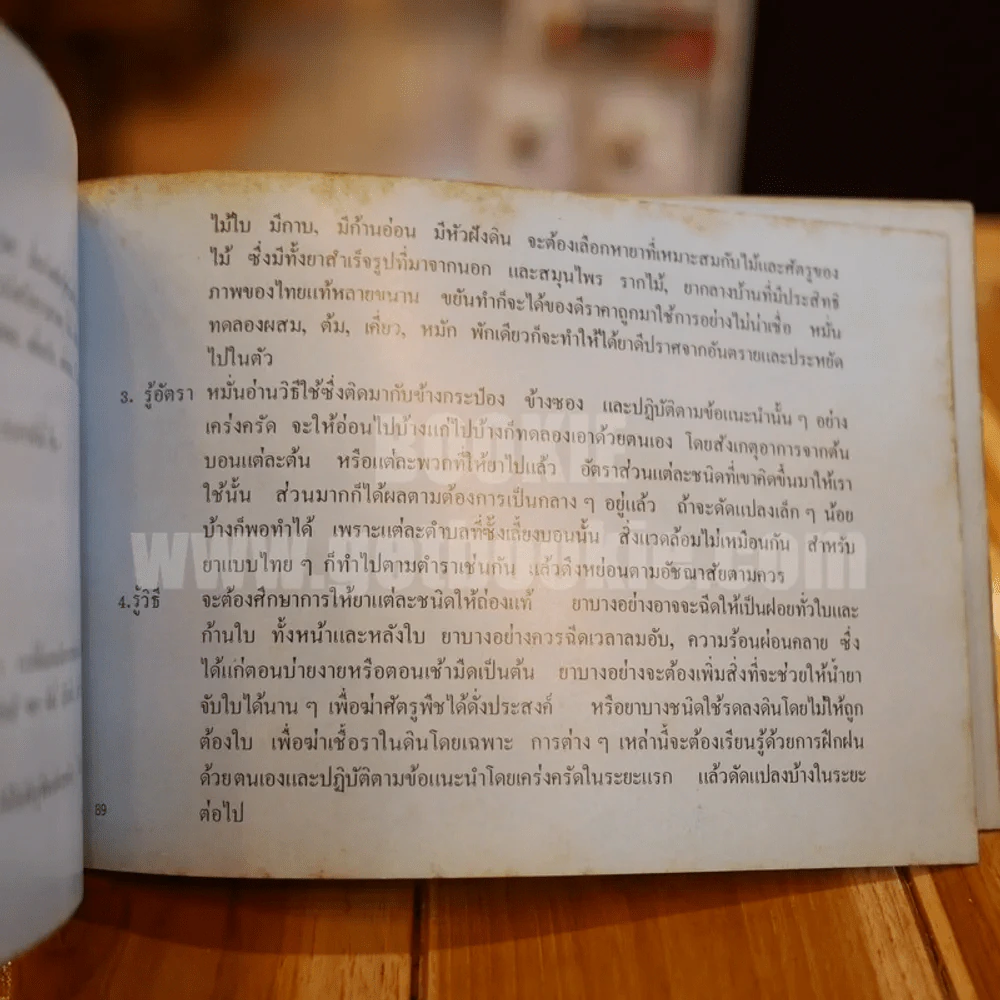 ไม้ใบ มีกาบ, มีก้านอ่อน มีหัวฝังดิน จะต้องเลือกหายาที่เหมาะสมกับไม้และศัตรูของ
ไม้ ซึ่งมีทั้งยาสำเร็จรูปที่มาจากนอก และสมุนไพร รากไม้, ยากลางบ้านที่มีประสิทธิ
ภาพของไทยแท้หลายขนาน ขยันทำก็จะได้ของดีราคาถูกมาใช้การอย่างไม่น่าเชื่อ หมั่น
ทดลองผสม, ต้ม, เคี่ยว, หมัก พักเดียวก็จะทำให้ได้ยาดีปราศจากอันตรายและประหยัด
ไปในตัว
3. รู้อัตรา หมั่นอ่านวิธีใช้ซึ่งติดมากับข้างกระป๋อง ข้างซอง และปฏิบัติตามข้อแนะนำนั้น ๆ อย่าง
เคร่งครัด จะให้อ่อนไปบ้างแก่ไปบ้างก็ทดลองเอาด้วยตนเอง โดยสังเกตุอาการจากต้น
บอนแต่ละต้น หรือแต่ละพวกที่ให้ยาไปแล้ว อัตราส่วนแต่ละชนิดที่เขาคิดขึ้นมาให้เรา
ใช้นั้น ส่วนมากก็ได้ผลตามต้องการเป็นกลาง ๆ อยู่แล้ว ถ้าจะดัดแปลงเล็ก ๆ น้อย
บ้างก็พอทำได้ เพราะแต่ละตำบลที่ซึ้งเลี้ยงบอนนั้น สิ่งแวดล้อมไม่เหมือนกัน สำหรับ
ยาแบบไทย ๆ ก็ทำไปตามตำราเช่นกัน แล้วตึงหย่อนตามอัชฌาสัยตามควร
4.รู้วิธี จะต้องศึกษาการให้ยาแต่ละชนิดให้ถ่องแท้ ยาบางอย่างอาจจะฉีดให้เป็นฝอยทั่วใบและ
ก้านใบ ทั้งหน้าและหลังใบ ยาบางอย่างควรฉีดเวลาลมอับ, ความร้อนผ่อนคลาย ซึ่ง
ได้แก่ตอนบ่ายงายหรือตอนเช้ามืดเป็นต้น ยาบางอย่างจะต้องเพิ่มสิ่งที่จะช่วยให้น้ำยา
จับใบได้นาน ๆ เพื่อฆ่าศัตรูพืชได้ดั่งประสงค์ หรือยาบางชนิดใช้รดลงดินโดยไม่ให้ถูก
ต้องใบ เพื่อฆ่าเชื้อราในดินโดยเฉพาะ การต่าง ๆ เหล่านี้จะต้องเรียนรู้ด้วยการฝึกฝน
ด้วยตนเองและปฏิบัติตามข้อแนะนำโดยเคร่งครัดในระยะแรก แล้วดัดแปลงบ้างในระยะ
ต่อไป
89
BOOKIE
www.getbookie.com